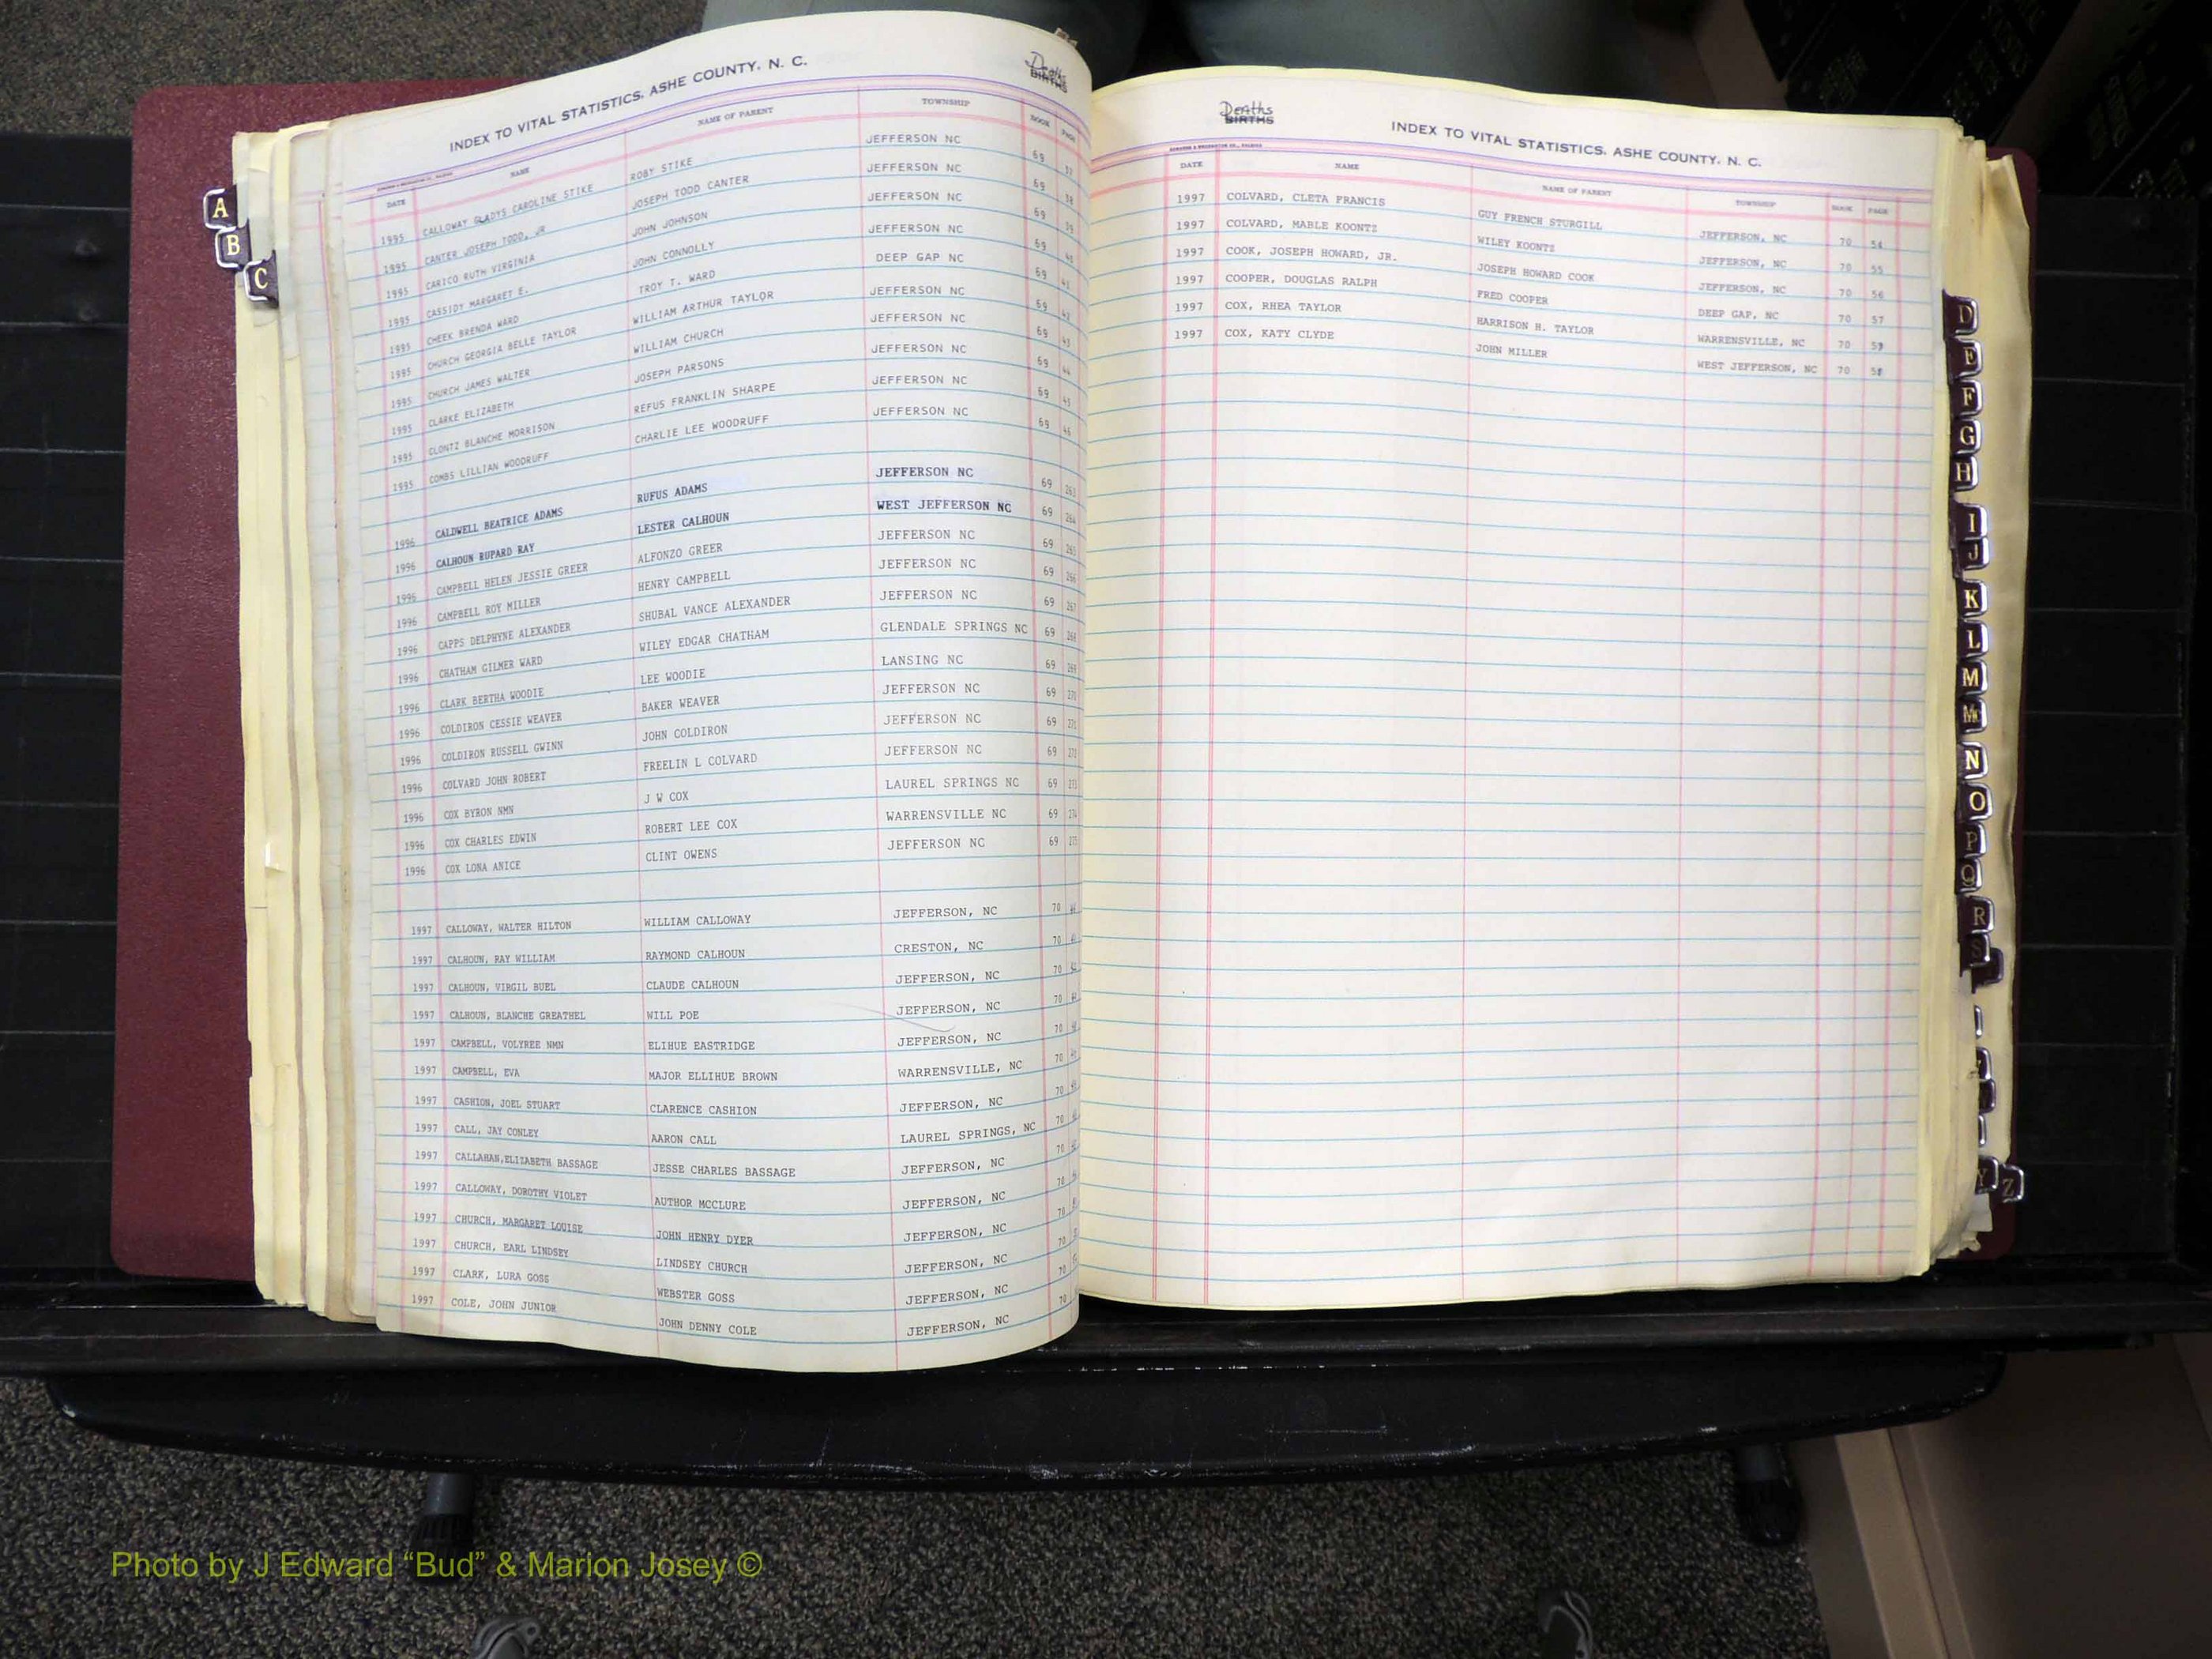 INDEX TO VITAL STATISTICS, ASHE COUNTY, N. C.
Deaths
BIRTHS
DATE NAME NAME OF PARENT TOWNSHIP BOOK PAGE
1995 CALLOWAY GLADYS CAROLINE STIKE ROBY STIKE JEFFERSON NC 69 37
1995 CANTER JOSEPH TODD, JR JOSEPH TODD CANTER JEFFERSON NC 69 38
1995 CARICO RUTH VIRGINIA JOHN JOHNSON JEFFERSON NC 69 39
1995 CASSIDY MARGARET E. JOHN CONNOLLY JEFFERSON NC 69 40
1995 CHEEK BRENDA WARD TROY T. WARD DEEP GAP NC 69 41
1995 CHURCH GEORGIA BELLE TAYLOR WILLIAM ARTHUR TAYLOR JEFFERSON NC 69 42
1995 CHURCH JAMES WALTER WILLIAM CHURCH JEFFERSON NC 69 43
1995 CLARKE ELIZABETH JOSEPH PARSONS JEFFERSON NC 69 44
1995 CLONTZ BLANCHE MORRISON REFUS FRANKLIN SHARPE JEFFERSON NC 69 45
1995 COMBS LILLIAN WOODRUFF CHARLIE LEE WOODRUFF JEFFERSON NC 69 46
1996 CALDWELL BEATRICE ADAMS RUFUS ADAMS JEFFERSON NC 69 263
1996 CALHOUN RUPARD RAY LESTER CALHOUN WEST JEFFERSON NC 69 264
1996 CAMPBELL HELEN JESSIE GREER ALFONZO GREER JEFFERSON NC 69 265
1996 CAMPBELL ROY MILLER HENRY CAMPBELL JEFFERSON NC 69 266
1996 CAPPS DELPHYNE ALEXANDER SHUBAL VANCE ALEXANDER JEFFERSON NC 69 267
1996 CHATHAM GILMER WARD WILEY EDGAR CHATHAM GLENDALE SPRINGS NC 69 268
1996 CLARK BERTHA WOODIE LEE WOODIE LANSING NC 69 269
1996 COLDIRON CESSIE WEAVER BAKER WEAVER JEFFERSON NC 69 270
1996 COLDIRON RUSSELL GWINN JOHN COLDIRON JEFFERSON NC 69 271
1996 COLVARD JOHN ROBERT FREELIN L COLVARD JEFFERSON NC 69 272
1996 COX BYRON NMN J W COX LAUREL SPRINGS NC 69 273
1996 COX CHARLES EDWIN ROBERT LEE COX WARRENSVILLE NC 69 274
1996 COX LONA ANICE CLINT OWENS JEFFERSON NC 69 275
1997 CALLOWAY, WALTER HILTON WILLIAM CALLOWAY JEFFERSON, NC 70
1997 CALHOUN, RAY WILLIAM RAYMOND CALHOUN CRESTON, NC 70
1997 CALHOUN, VIRGIL BUEL CLAUDE CALHOUN JEFFERSON, NC 70
1997 CALHOUN, BLANCHE GREATHEL WILL POE JEFFERSON, NC 70
1997 CAMPBELL, VOLYREE NMN ELIHUE EASTRIDGE JEFFERSON, NC 70
1997 CAMPBELL, EVA MAJOR ELLIHUE BROWN WARRENSVILLE, NC 70
1997 CASHION, JOEL STUART CLARENCE CASHION JEFFERSON, NC 70
1997 CALL, JAY CONLEY AARON CALL LAUREL SPRINGS, NC 70
1997 CALLAHAN,ELIZABETH BASSAGE JESSE CHARLES BASSAGE JEFFERSON, NC 70
1997 CALLOWAY, DOROTHY VIOLET AUTHOR MCCLURE JEFFERSON, NC 70
1997 CHURCH, MARGARET LOUISE JOHN HENRY DYER JEFFERSON, NC 70
1997 CHURCH, EARL LINDSEY LINDSEY CHURCH JEFFERSON, NC 70
1997 CLARK, LURA GOSS WEBSTER GOSS JEFFERSON, NC 70
1997 COLE, JOHN JUNIOR JOHN DENNY COLE JEFFERSON, NC 70
Deaths
BIRTHS
INDEX TO VITAL STATISTICS, ASHE COUNTY, N. C.
DATE NAME NAME OF PARENT TOWNSHIP BOOK PAGE
1997 COLVARD, CLETA FRANCIS GUY FRENCH STURGILL JEFFERSON, NC 70 54
1997 COLVARD, MABLE KOONTZ WILEY KOONTZ JEFFERSON, NC 70 55
1997 COOK, JOSEPH HOWARD, JR. JOSEPH HOWARD COOK JEFFERSON, NC 70 56
1997 COOPER, DOUGLAS RALPH FRED COOPER DEEP GAP, NC 70 57
1997 COX, RHEA TAYLOR HARRISON H. TAYLOR WARRENSVILLE, NC 70
1997 COX, KATY CLYDE JOHN MILLER WEST JEFFERSON, NC 70
A
B
C
D
E
F
G
H
I
J
K
L
M
Mc
N
O
P
Q
R
S
Y
Z
Photo by J Edward “Bud” & Marion Josey ©